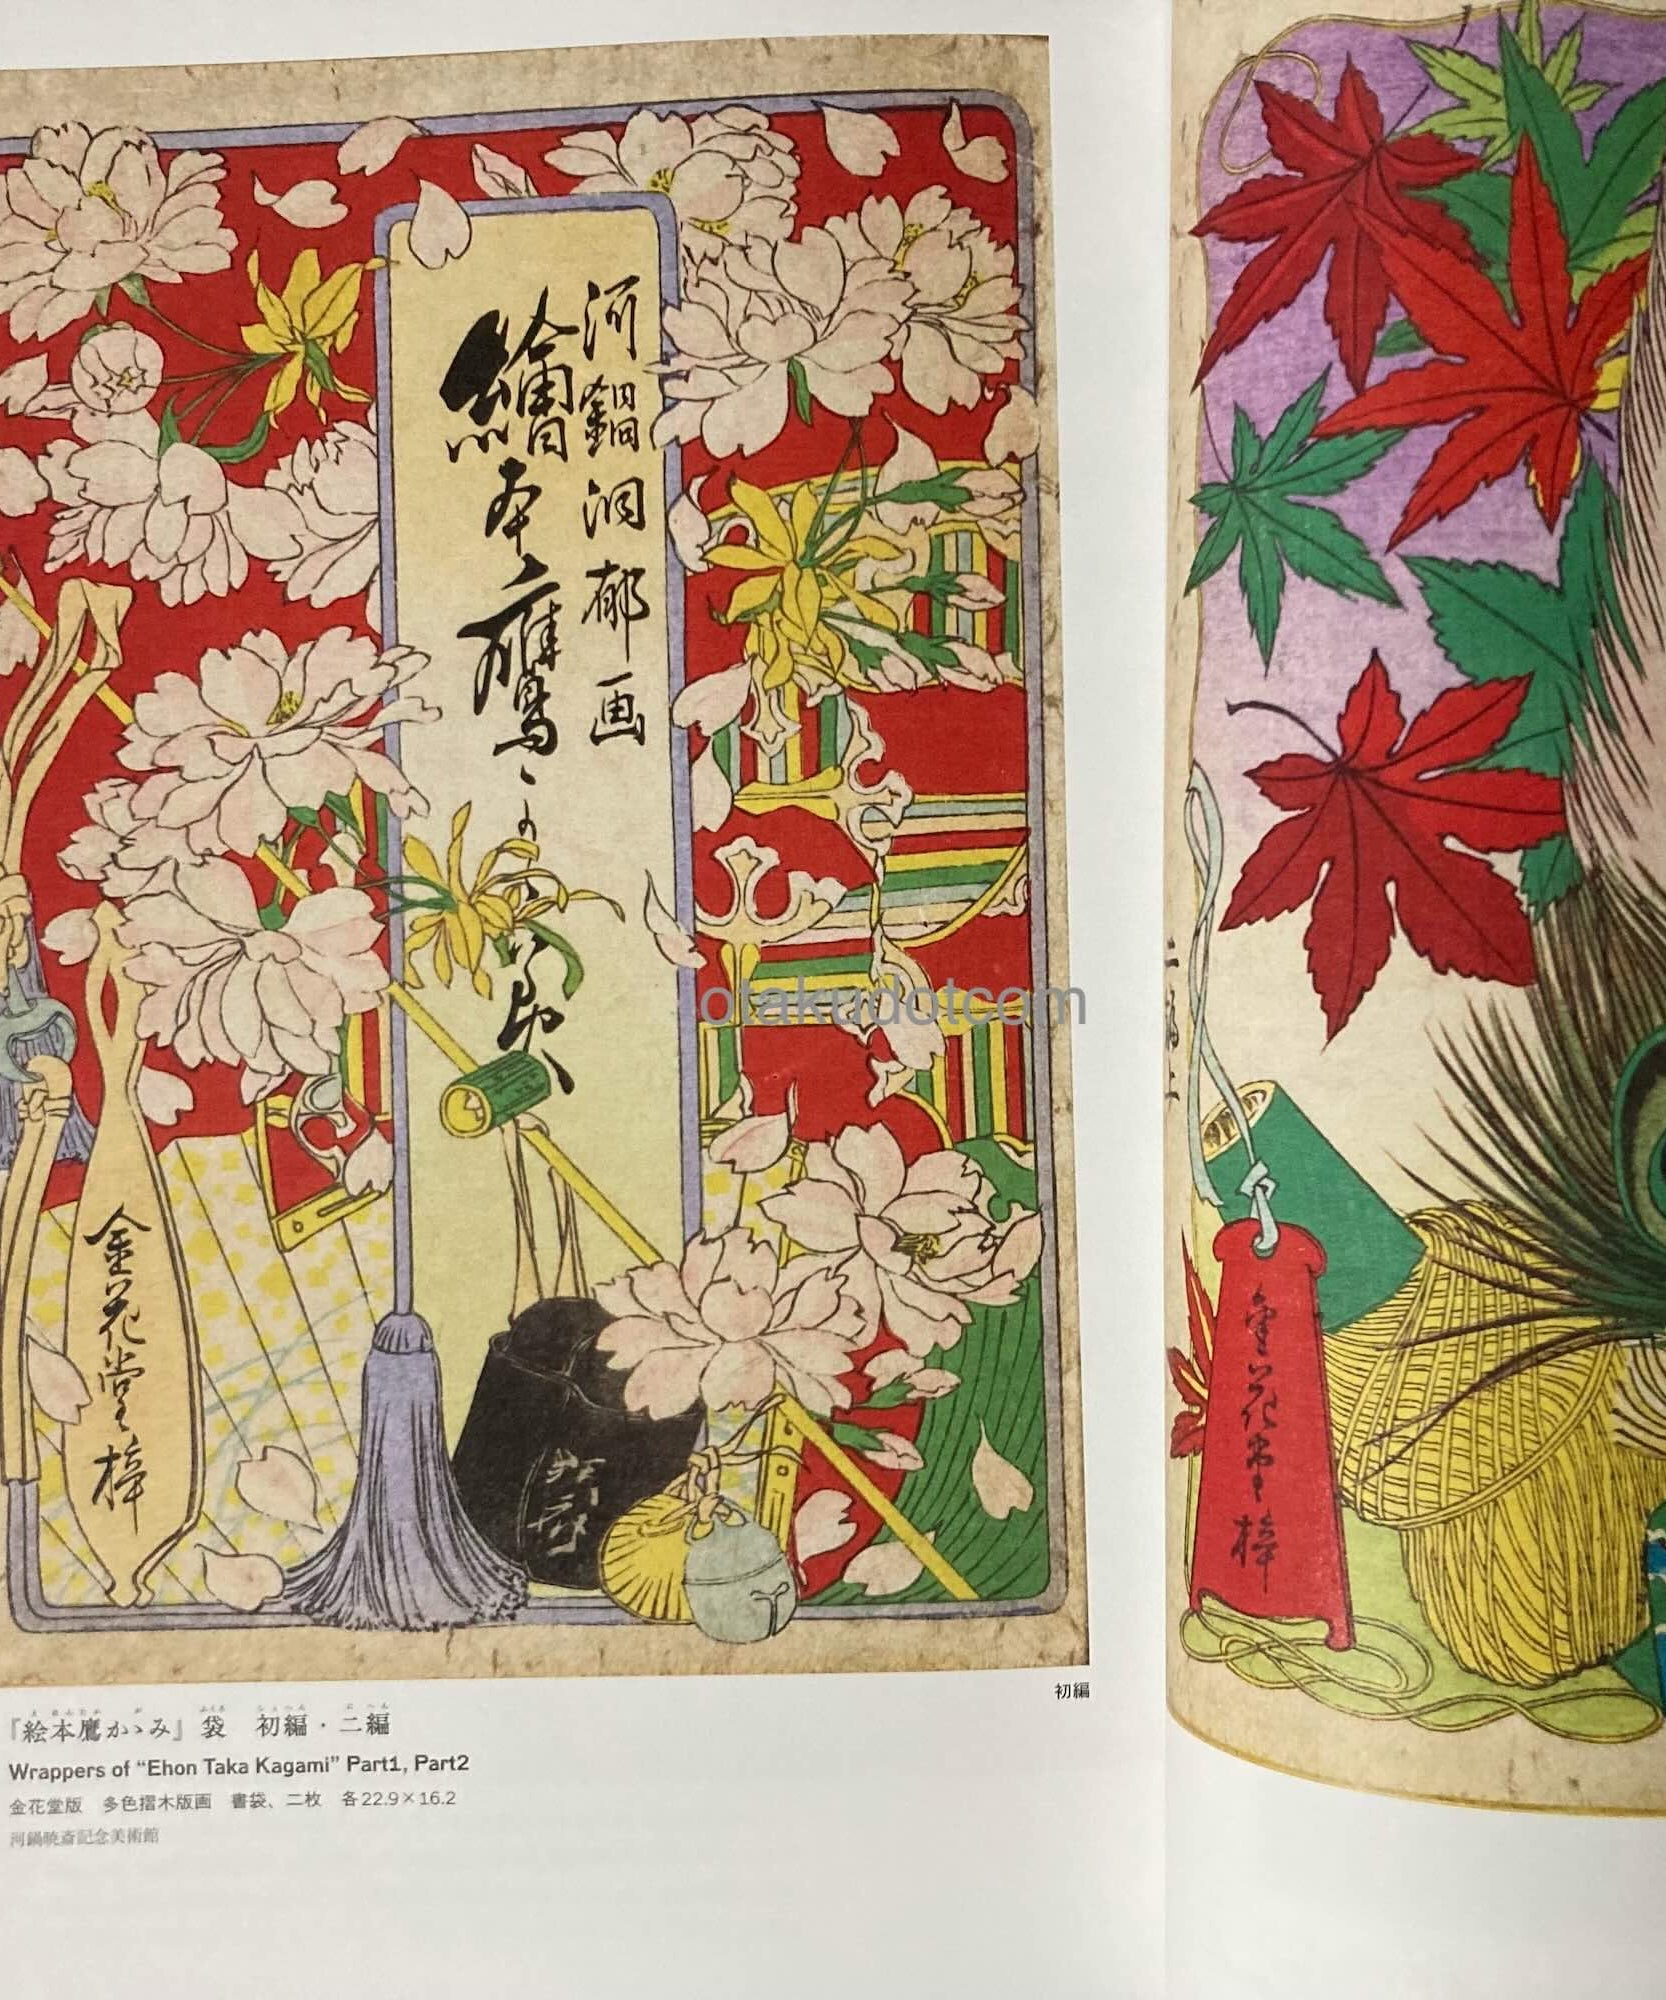 河鍋洞郁画
繪本鷹かゞみ
金花堂梓
金花堂梓
初編
『絵本鷹かゝみ』袋　初編・二編
Wrappers of “Ehon Taka Kagami” Part1, Part2
金花堂版　多色摺木版画　書袋、二枚　各22.9×16.2
河鍋暁斎記念美術館
otakudotcom